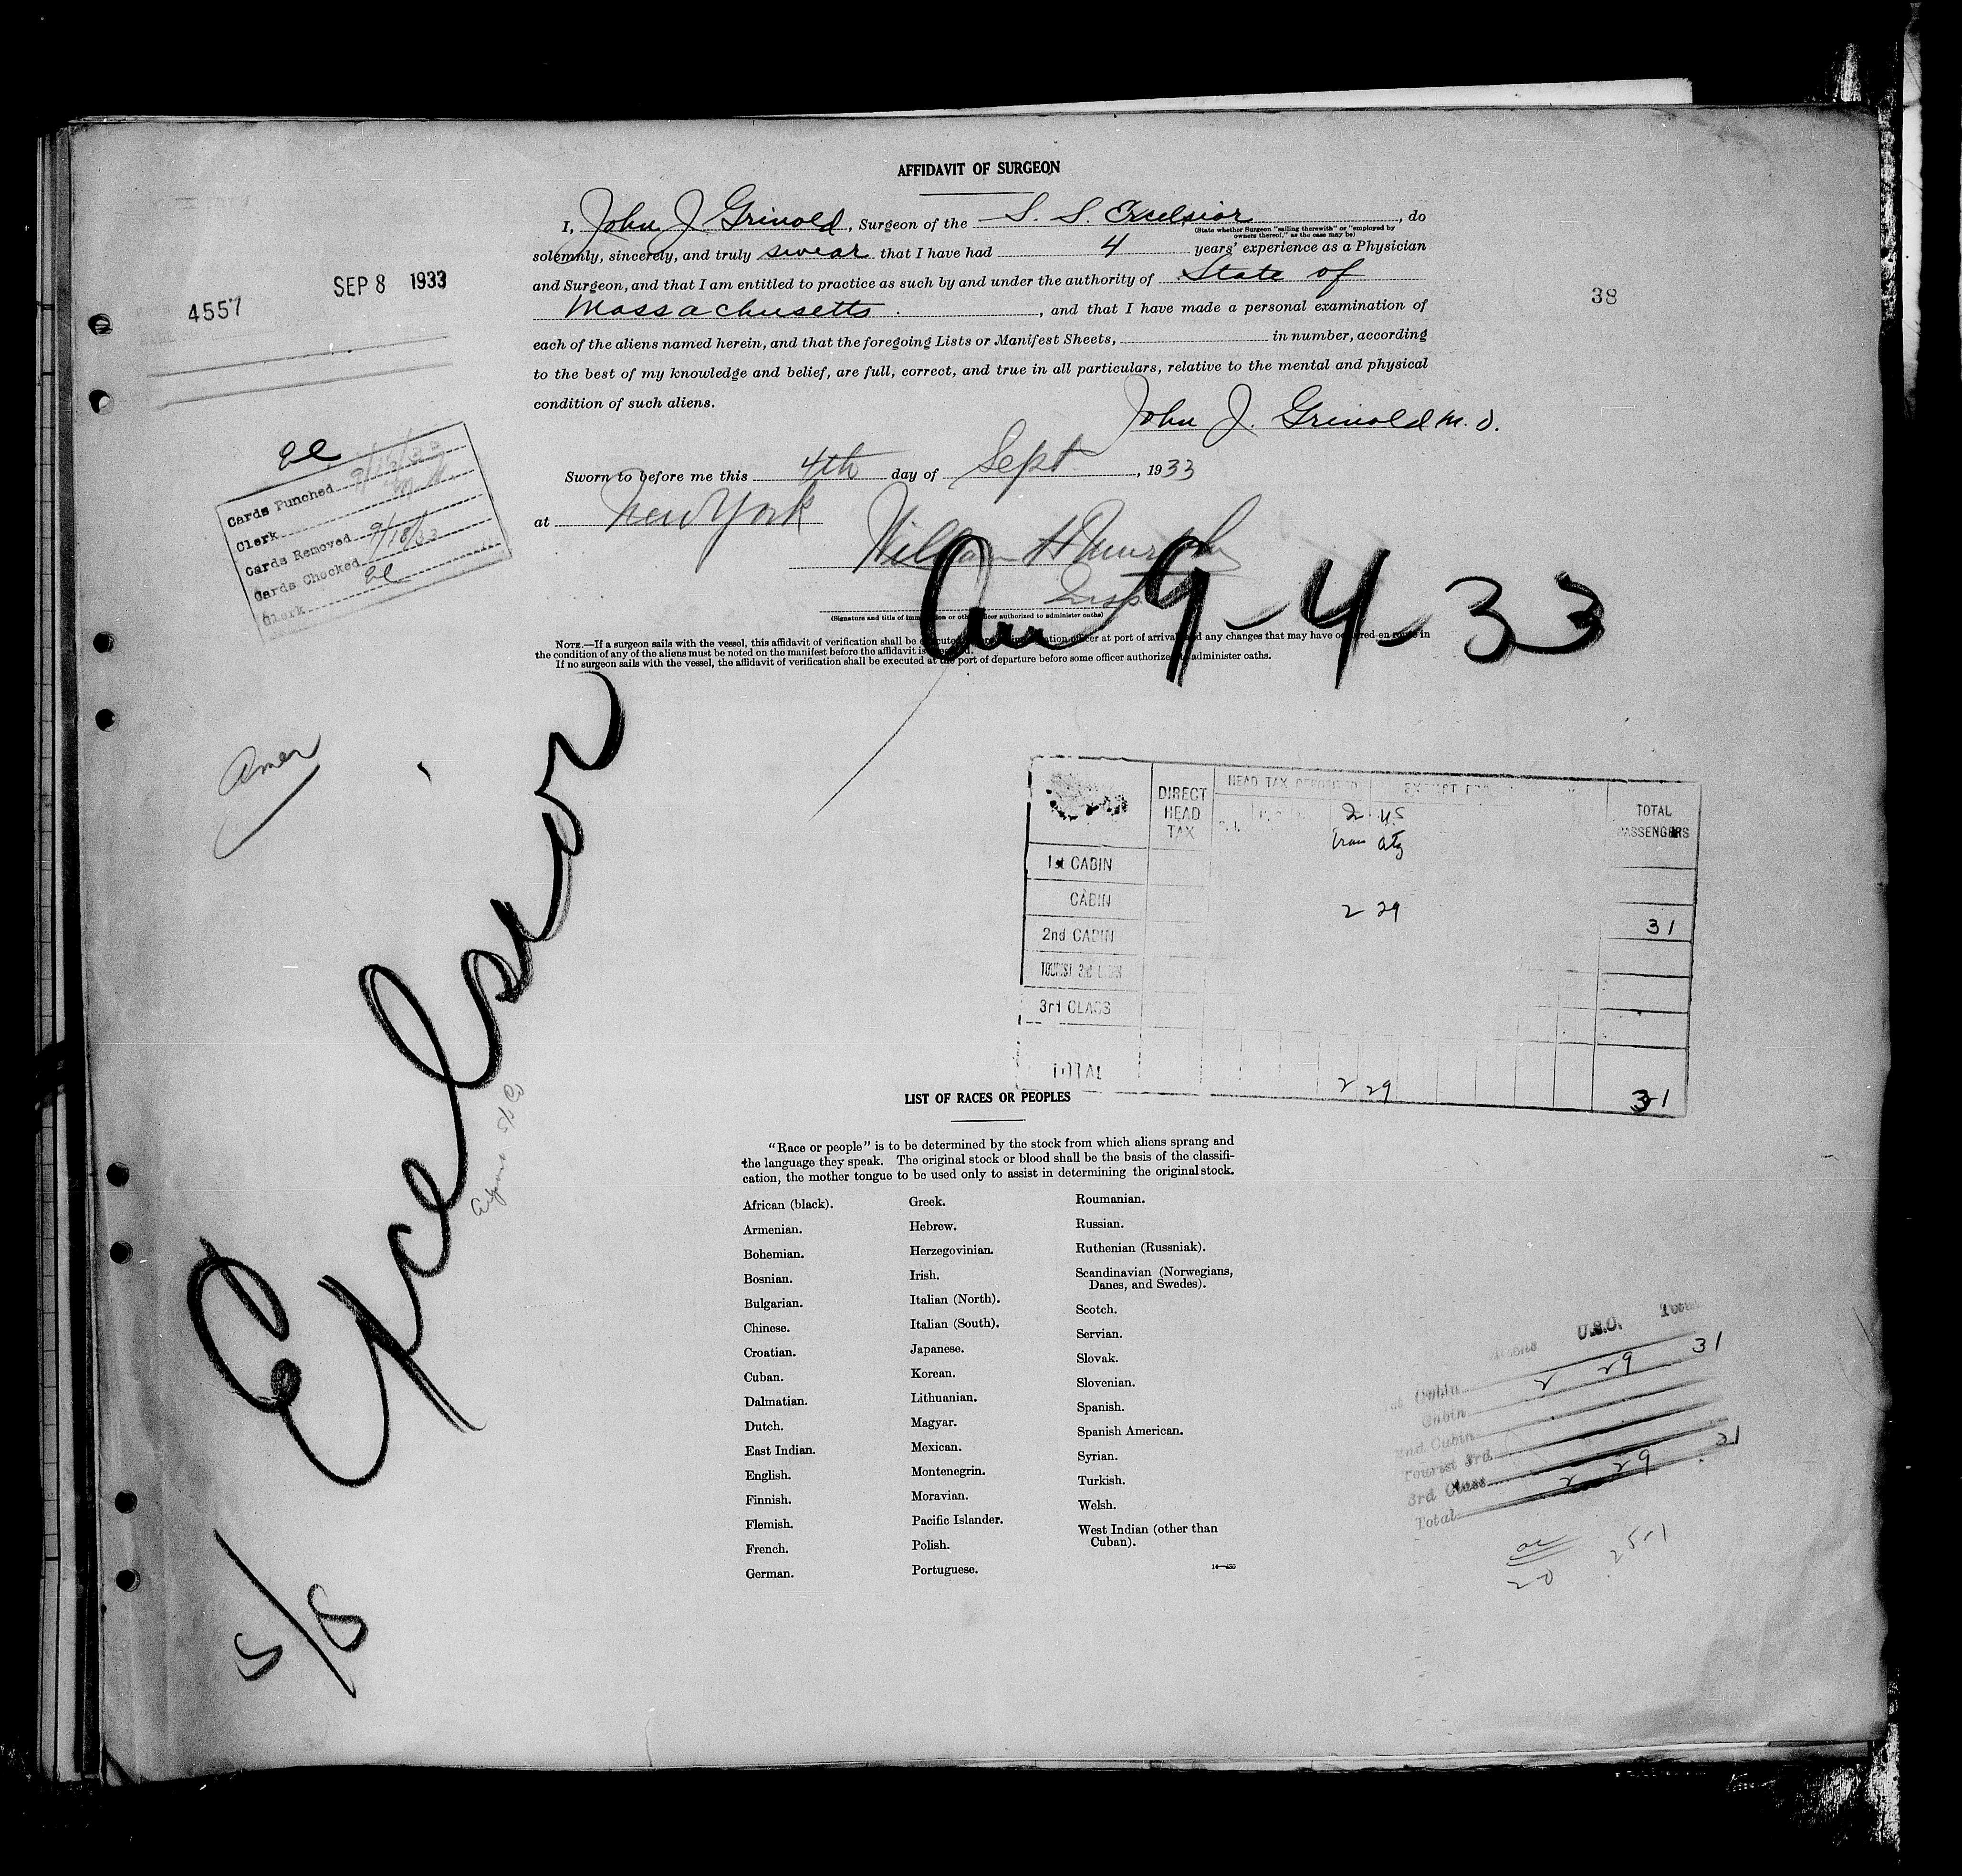 AFFIDAVIT OF SURGEON
I, John J. Grinold, Surgeon of the S. S. Excelsior, do
(State whether Surgeon "sailing therewith" or "employed by
owners thereof," as the case may be)
solemnly, sincerely, and truly swear that I have had 4 years' experience as a Physician
and Surgeon, and that I am entitled to practice as such by and under the authority of State of
Massachusetts, and that I have made a personal examination of
each of the aliens named herein, and that the foregoing Lists or Manifest Sheets, in number, according
to the best of my knowledge and belief, are full, correct, and true in all particulars, relative to the mental and physical
condition of such aliens.
John J. Grinold M. D.
Sworn to before me this 4th day of Sept, 1933
at New York
William H Murphy
Insp.
(Signature and title of immigration or other officer authorized to administer oaths)
NOTE.—If a surgeon sails with the vessel, this affidavit of verification shall be executed before immigration officer at port of arrival and any changes that may have occurred en route in
the condition of any of the aliens must be noted on the manifest before the affidavit is executed.
If no surgeon sails with the vessel, the affidavit of verification shall be executed at the port of departure before some officer authorized to administer oaths.
SEP 8 1933
4557
38
Cards Punched 9/18/33
Clerk
Cards Removed 9/18/33
Cards Checked
Clerk
9-4-33
Amer
Excelsior
S/S
DIRECT HEAD TAX
HEAD TAX DEPOSITED
EXEMPT FROM
TOTAL PASSENGERS
2 US
Tran Ctz
1st CABIN
CABIN
2 29
31
2nd CABIN
TOURIST 3rd CABIN
3rd CLASS
TOTAL
2 29
31
LIST OF RACES OR PEOPLES
"Race or people" is to be determined by the stock from which aliens sprang and
the language they speak. The original stock or blood shall be the basis of the classifi-
cation, the mother tongue to be used only to assist in determining the original stock.
African (black).
Armenian.
Bohemian.
Bosnian.
Bulgarian.
Chinese.
Croatian.
Cuban.
Dalmatian.
Dutch.
East Indian.
English.
Finnish.
Flemish.
French.
German.
Greek.
Hebrew.
Herzegovinian.
Irish.
Italian (North).
Italian (South).
Japanese.
Korean.
Lithuanian.
Magyar.
Mexican.
Montenegrin.
Moravian.
Pacific Islander.
Polish.
Portuguese.
Roumanian.
Russian.
Ruthenian (Russniak).
Scandinavian (Norwegians,
Danes, and Swedes).
Scotch.
Servian.
Slovak.
Slovenian.
Spanish.
Spanish American.
Syrian.
Turkish.
Welsh.
West Indian (other than
Cuban).
14—430
Aliens U.S.C. Total
1st Cabin 2 29 31
Cabin
2nd Cabin
Tourist 3rd
3rd Class
Total 2 29 31
20